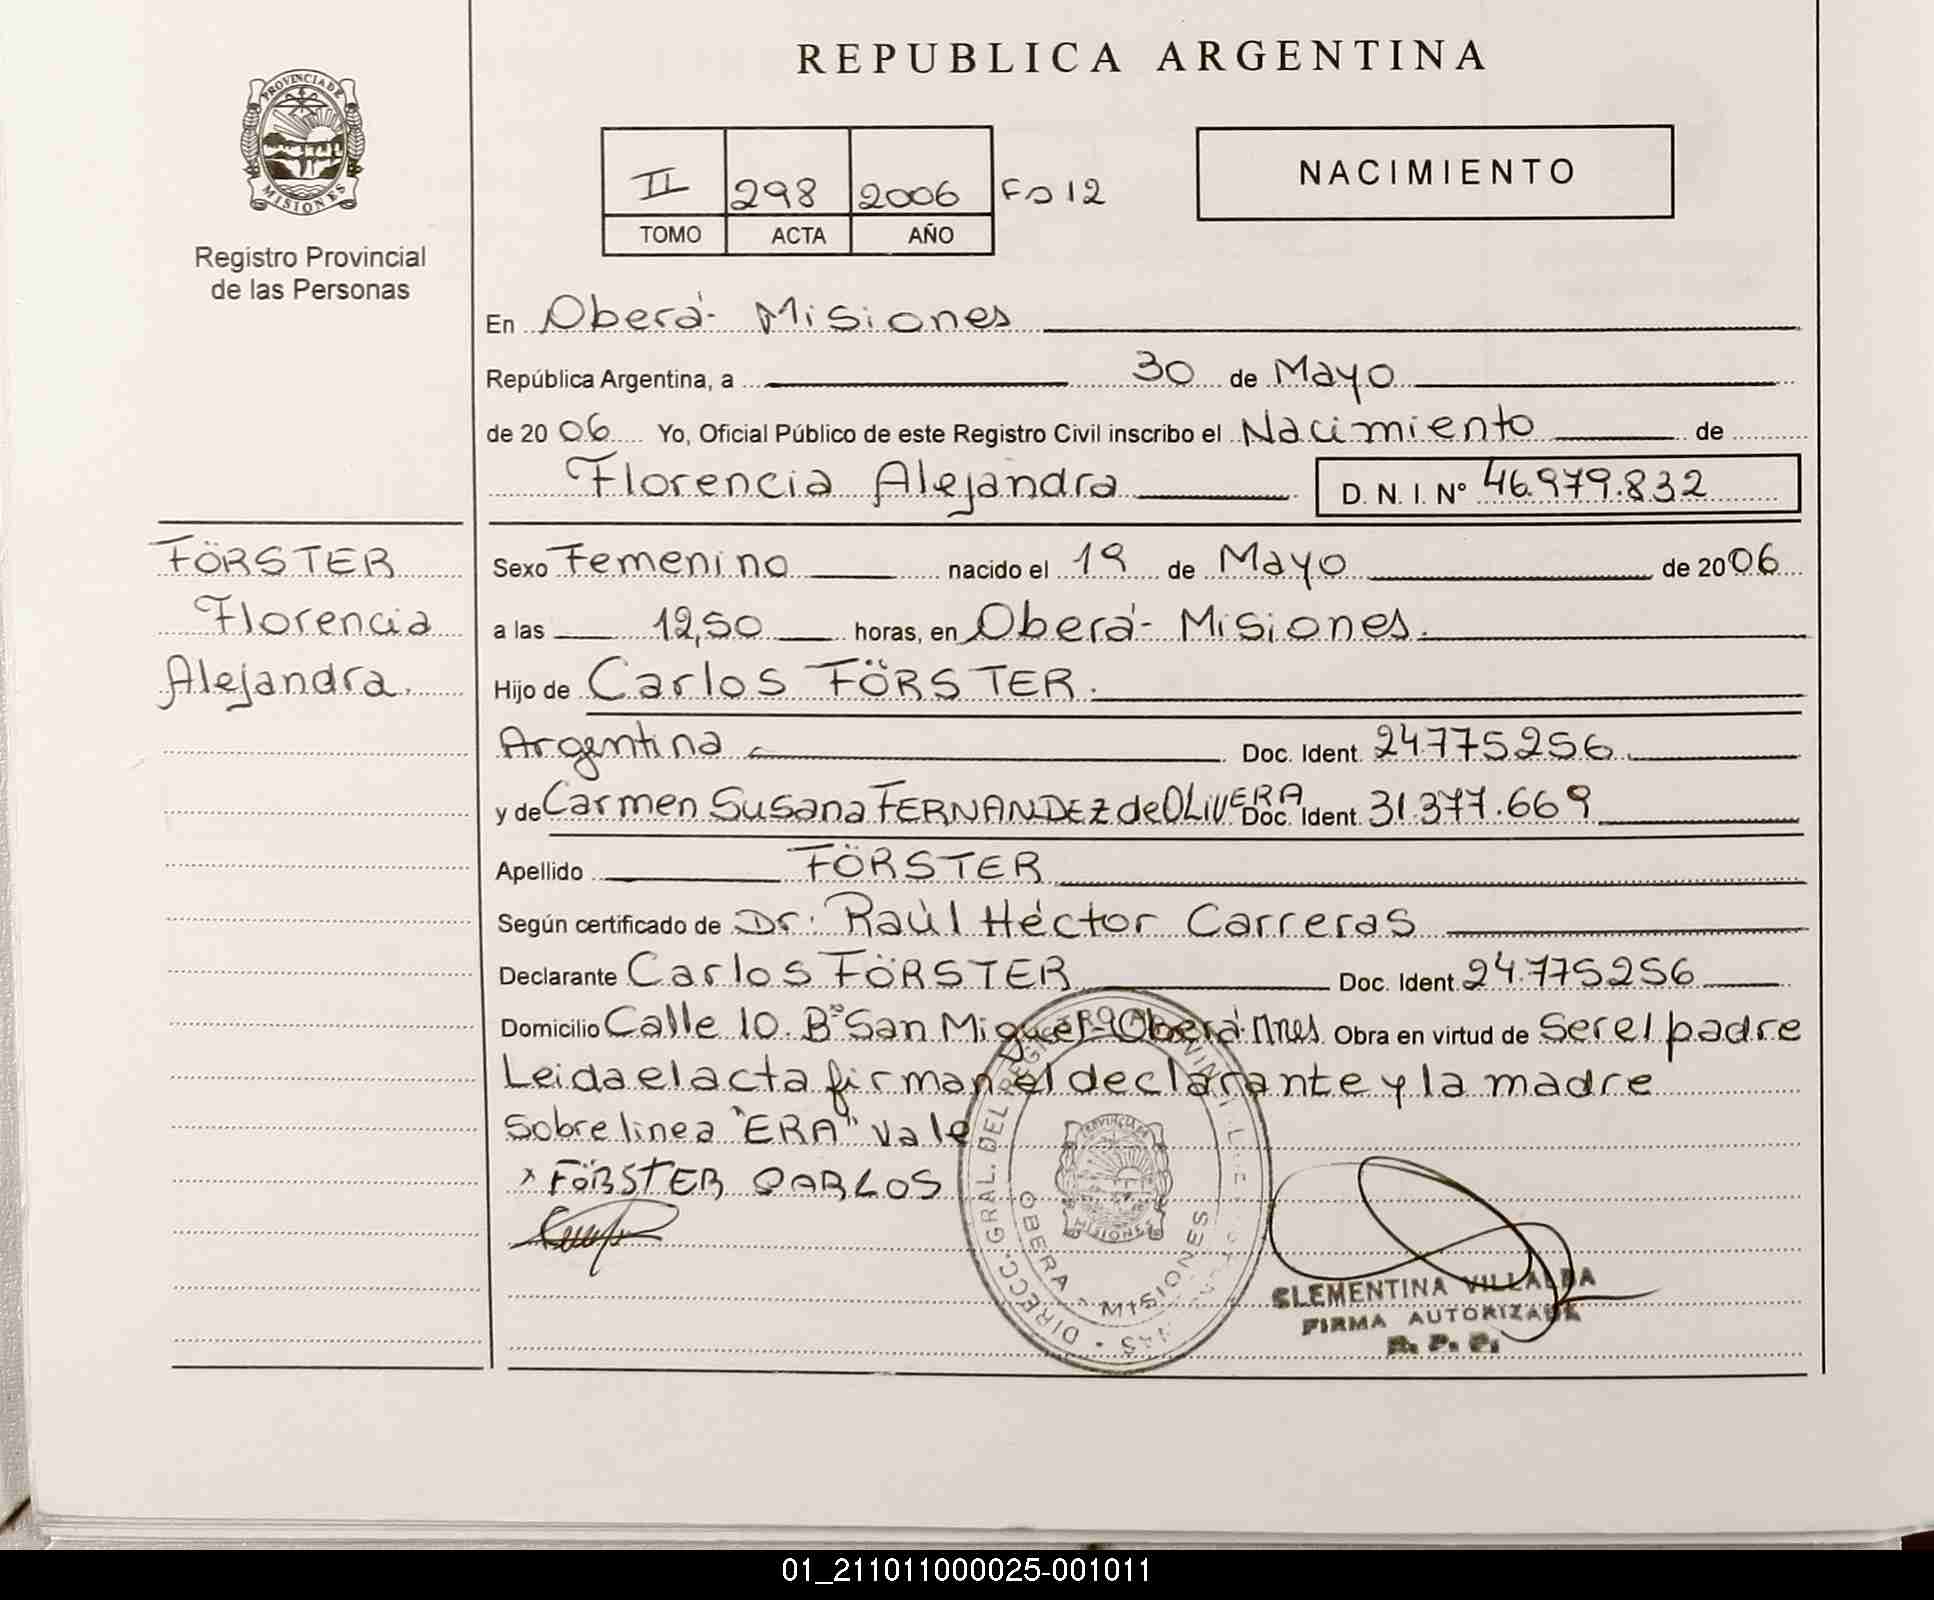 REPUBLICA ARGENTINA
PROVINCIA DE
MISIONES
Registro Provincial
de las Personas
II 298 2006 Fo 12
TOMO ACTA AÑO
NACIMIENTO
En Oberá - Misiones
República Argentina, a 30 de Mayo
de 2006 Yo, Oficial Público de este Registro Civil inscribo el Nacimiento de
Florencia Alejandra D. N. I. Nº 46.979.832
FÖRSTER
Florencia
Alejandra.
Sexo Femenino nacido el 19 de Mayo de 2006
a las 12,50 horas, en Oberá - Misiones.
Hijo de Carlos FÖRSTER.
Argentina Doc. Ident. 24.775256
y de Carmen Susana FERNANDEZ de OLIVERA Doc. Ident. 31.377.669
Apellido FÖRSTER
Según certificado de Dr. Raúl Héctor Carreras
Declarante Carlos FÖRSTER Doc. Ident. 24.775256
Domicilio Calle 10. Bº San Miguel - Oberá - Mnes Obra en virtud de Ser el padre
Leida el acta firman el declarante y la madre
Sobre linea "ERA" vale
x FÖRSTER CARLOS
DIRECC. GRAL. DEL REGISTRO PROVINCIAL DE LAS
PROVINCIA DE
MISIONES
OBERA - MISIONES
CLEMENTINA VILLALBA
FIRMA AUTORIZADA
R. P. P.
01_211011000025-001011